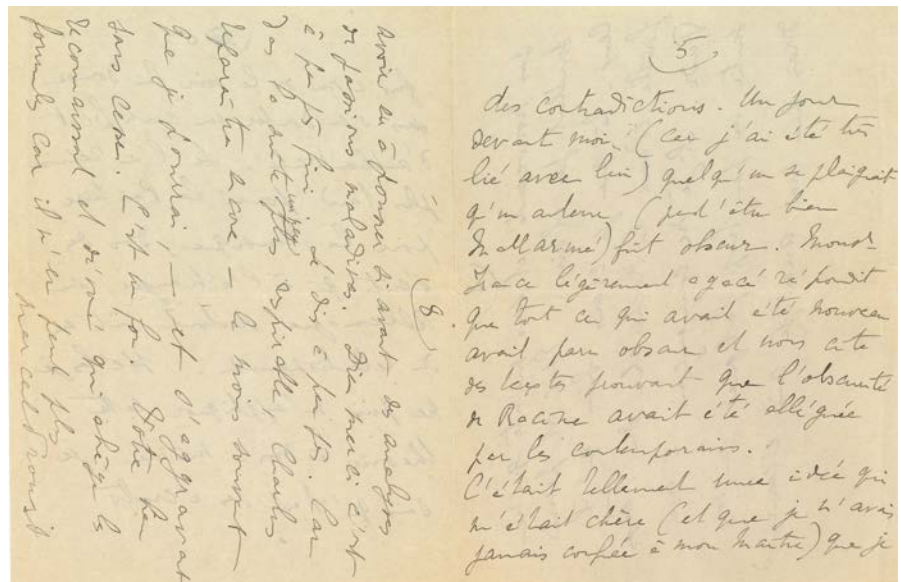 5
des contradictions. Un jour
devant moi, (car j'ai été très
lié avec lui) quelqu'un se plaignait
qu'un auteur (peut-être bien
Mallarmé) fût obscur. Monsr
France légèrement agacé répondit
que tout ce qui avait été nouveau
avait paru obscur et nous cita
des textes prouvant que l'obscurité
de Racine avait été alléguée
par les contemporains.
C'était tellement une idée qui
m'était chère (et que je n'avais
jamais confiée à mon maître) que je
8.
avoir eu à pousser si avant des analyses
de passions maladives. Dieu merci c'est
à peu près fini. Je dis à peu près. Car
dans la suite après Charlus
reparaîtra encore — le moins souvent
que je pourrai — et s'aggravant
sans cesse. C'est un fou. Votre bien
reconnaissant et dévoué qui abrège les
formules car il n'en peut plus
Marcel Proust